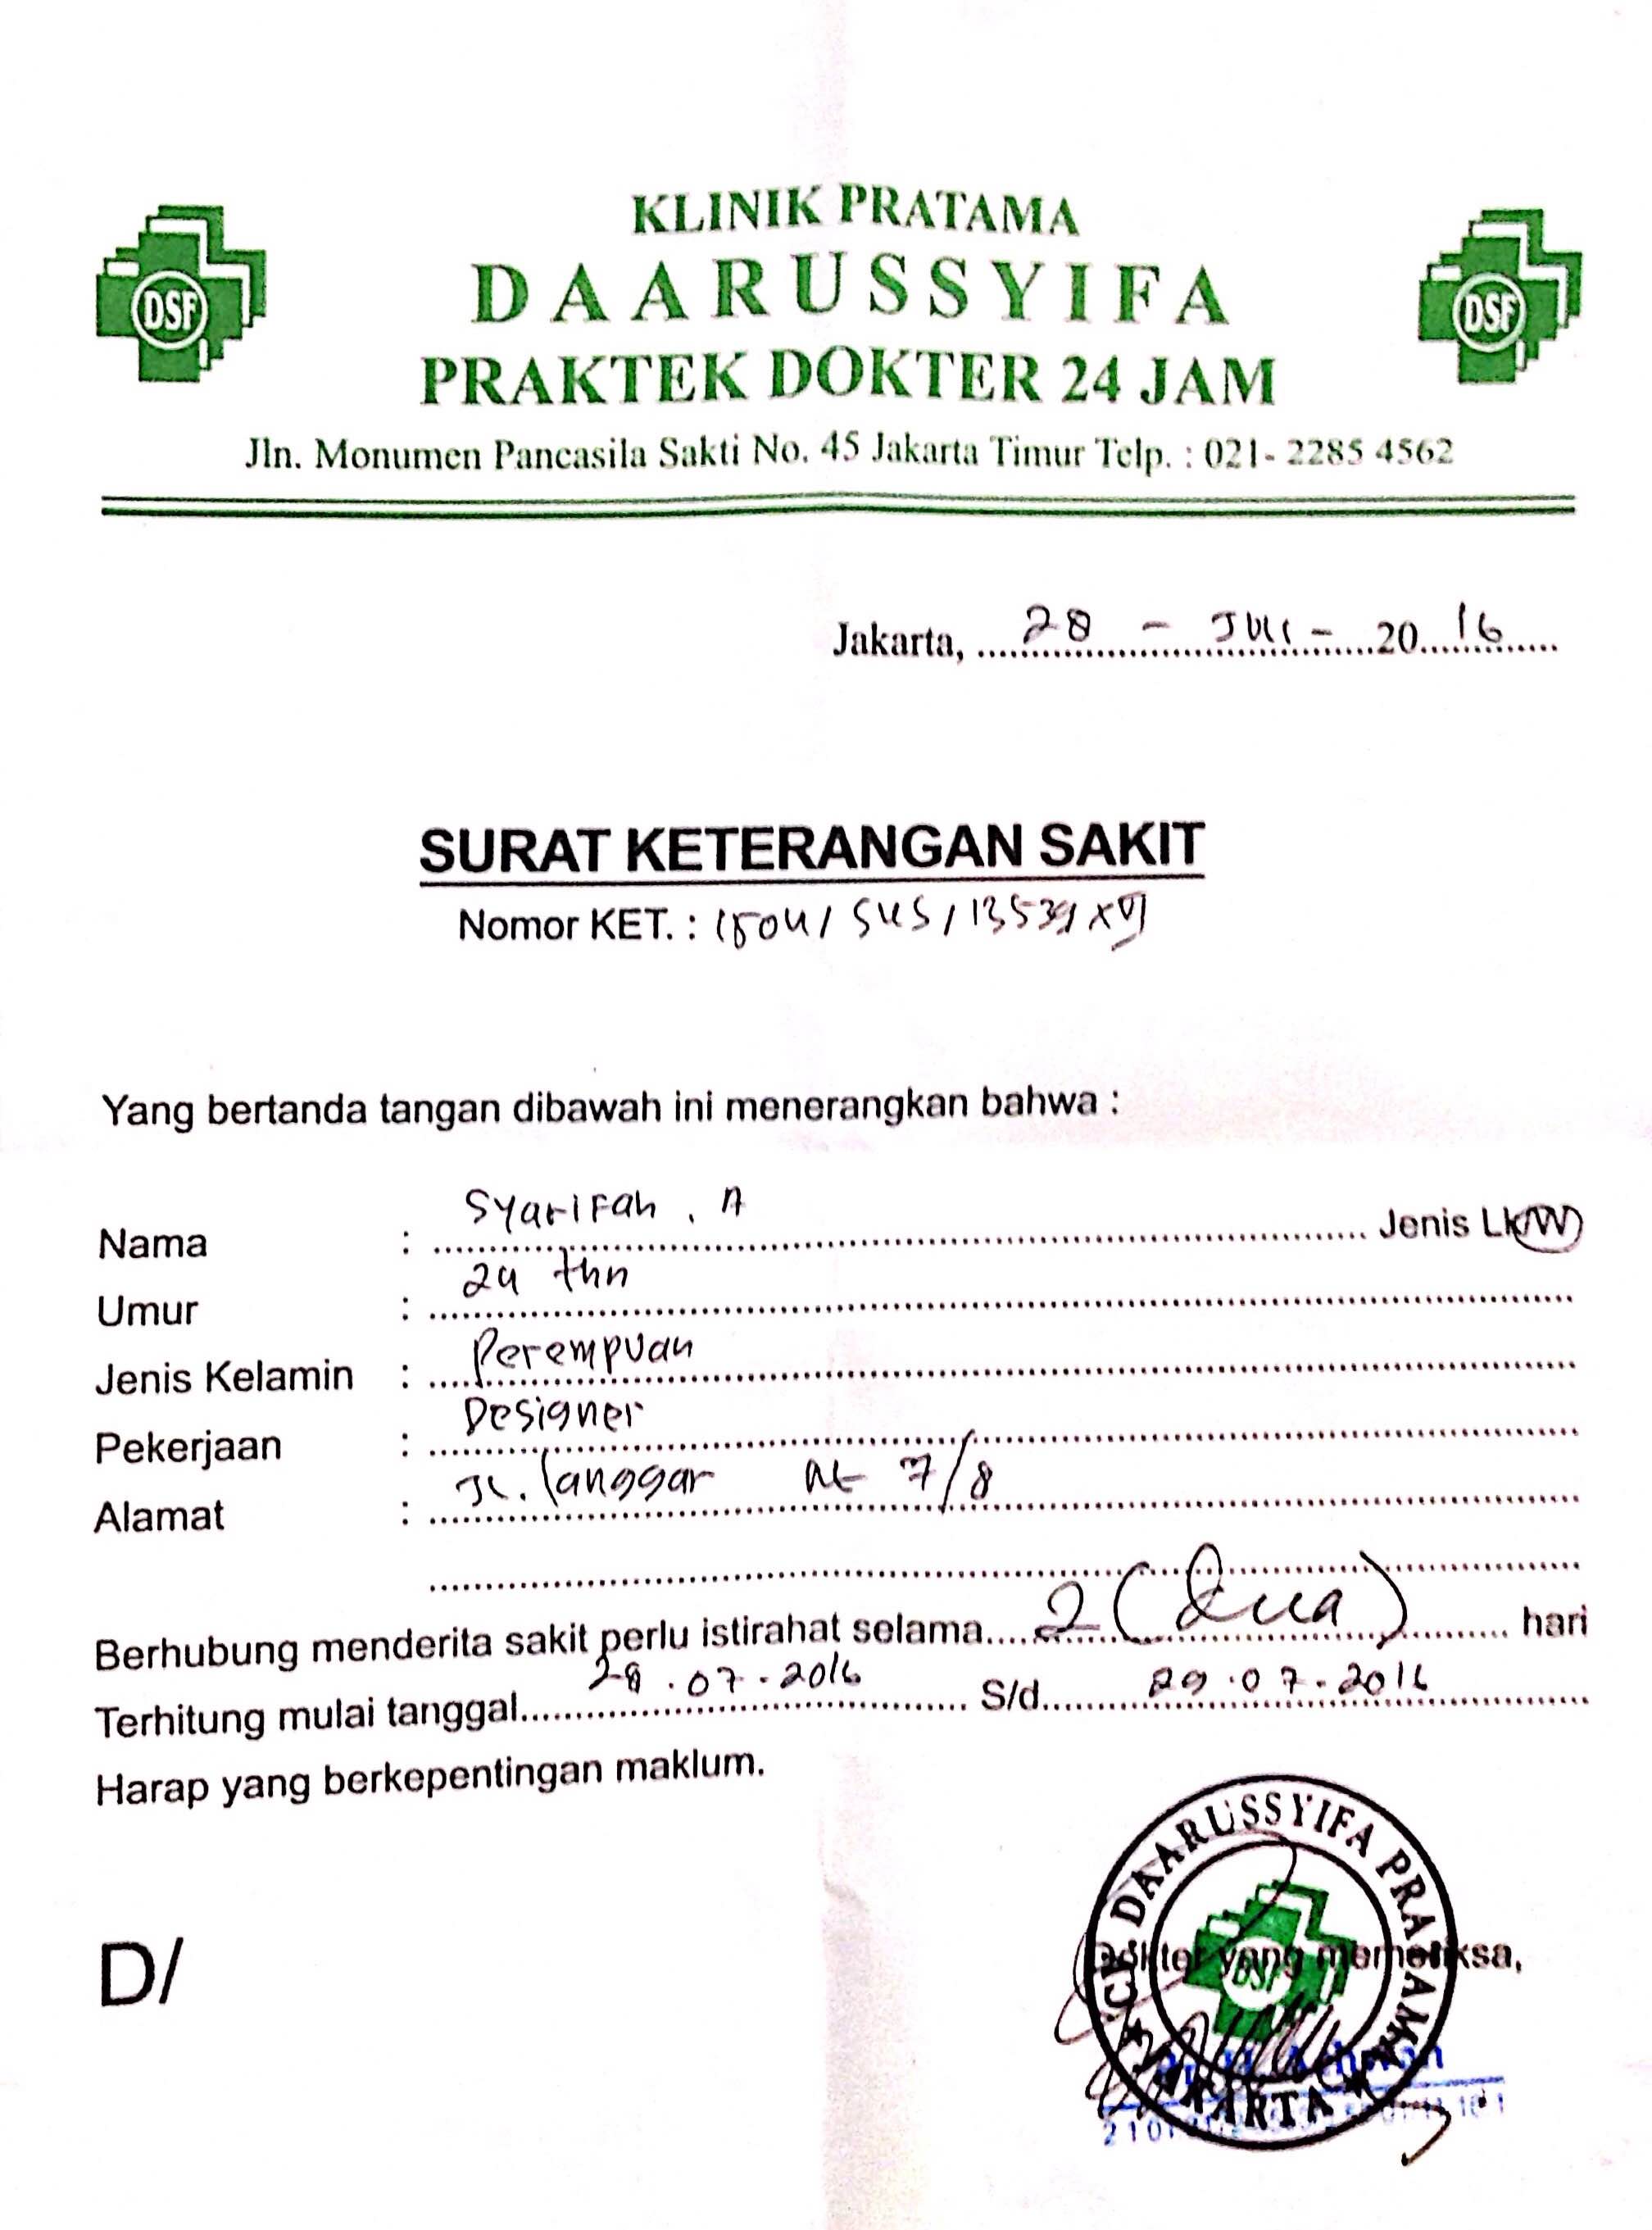 KLINIK PRATAMA
DAARUSSYIFA
PRAKTEK DOKTER 24 JAM
Jln. Monumen Pancasila Sakti No. 45 Jakarta Timur Telp. : 021- 2285 4562
DSF
DSF
Jakarta, 28 - Juli - 2016
SURAT KETERANGAN SAKIT
Nomor KET. :
Yang bertanda tangan dibawah ini menerangkan bahwa :
Nama : Syarifah . A Jenis Lk/W
Umur : 24 thn
Jenis Kelamin : Perempuan
Pekerjaan : Designer
Alamat : Jl. langgar Rt 7/8
Berhubung menderita sakit perlu istirahat selama 2 (dua) hari
Terhitung mulai tanggal 28.07.2016 S/d 29.07.2016
Harap yang berkepentingan maklum.
D/
Dokter yang memeriksa,
DAARUSSYIFA PRATAMA
DSF
JAKARTA